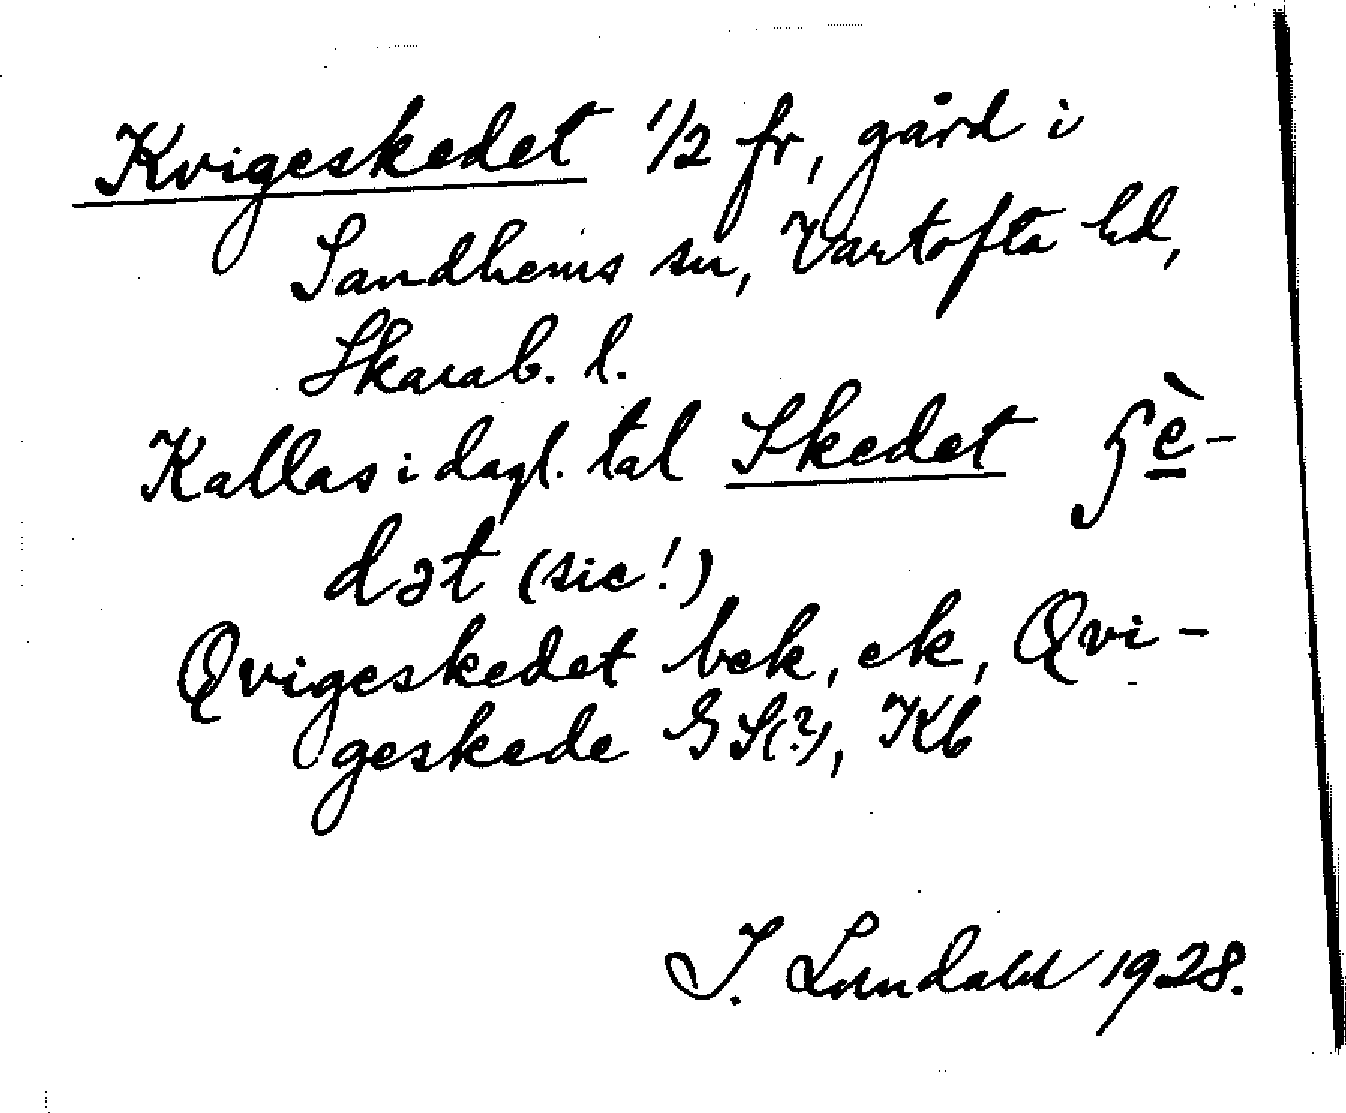 Kvigeskedet 1/2 fr, gård i
Sandhems sn, Vartofta hd,
Skarab. l.
Kallas i dagl. tal Skedet ʃè-
dət (sic!)
Qvigeskedet bek, ek, Qvi-
geskede GS(?), Kb
I. Lundahl 1928.